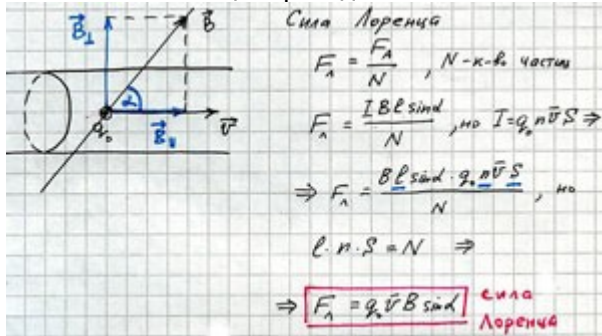 Сила Лоренца
B⃗⊥
B⃗
Fл = FА / N , N - к-во частиц
α
q₀
B⃗∥
v⃗
Fл = IBℓsinα / N , но I = q₀nv̄S ⇒
⇒ Fл = Bℓsinα · q₀nv̄S / N , но
ℓ · n · S = N ⇒
⇒ Fл = q₀v̄B sinα сила
Лоренца